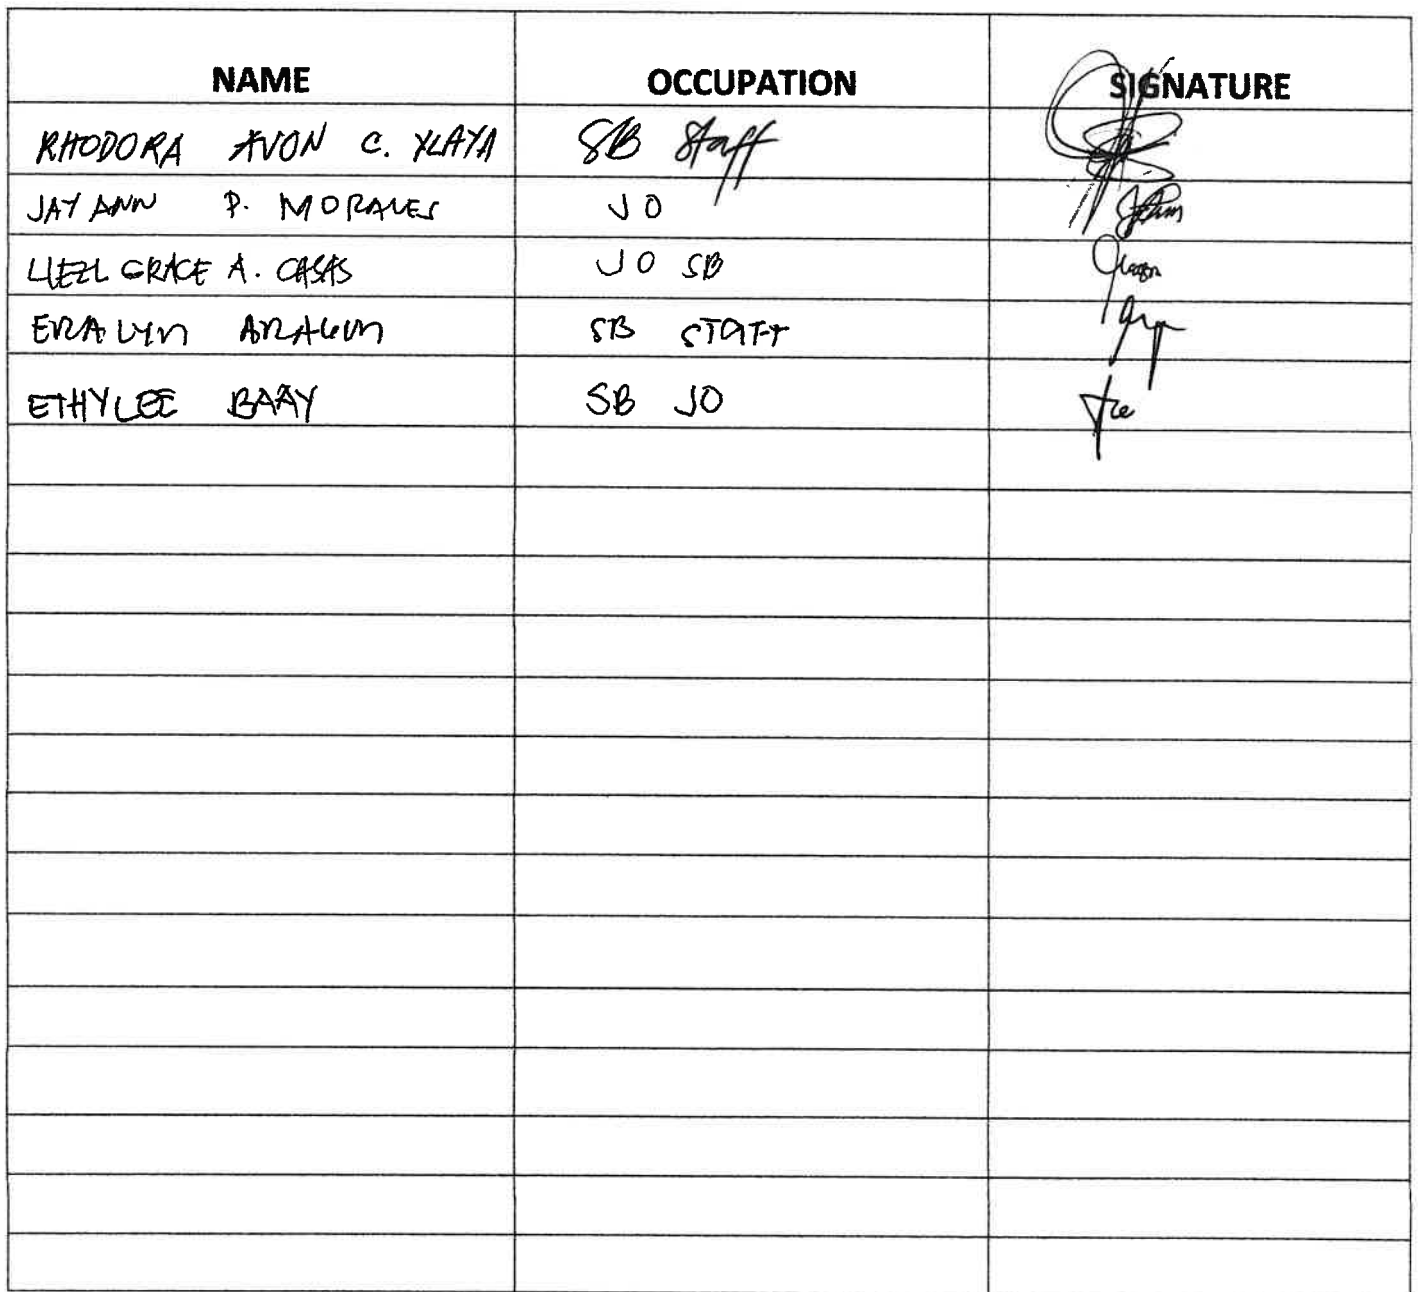 NAME OCCUPATION SIGNATURE
RHODORA AVON C. YLAYA SB Staff
JAY ANN P. MORALES JO
LIEZL GRACE A. CASAS JO SB
ERALYN SB STAFF
ETHYLEE BAAY SB JO